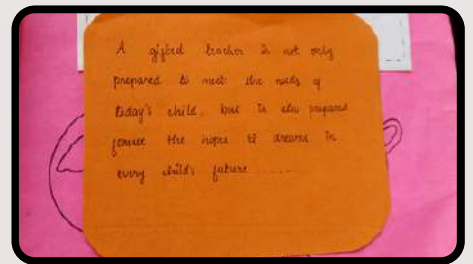 A gifted teacher is not only
prepared to meet the needs of
today's child, but is also prepared
foresee the hopes & dreams in
every child's future..........